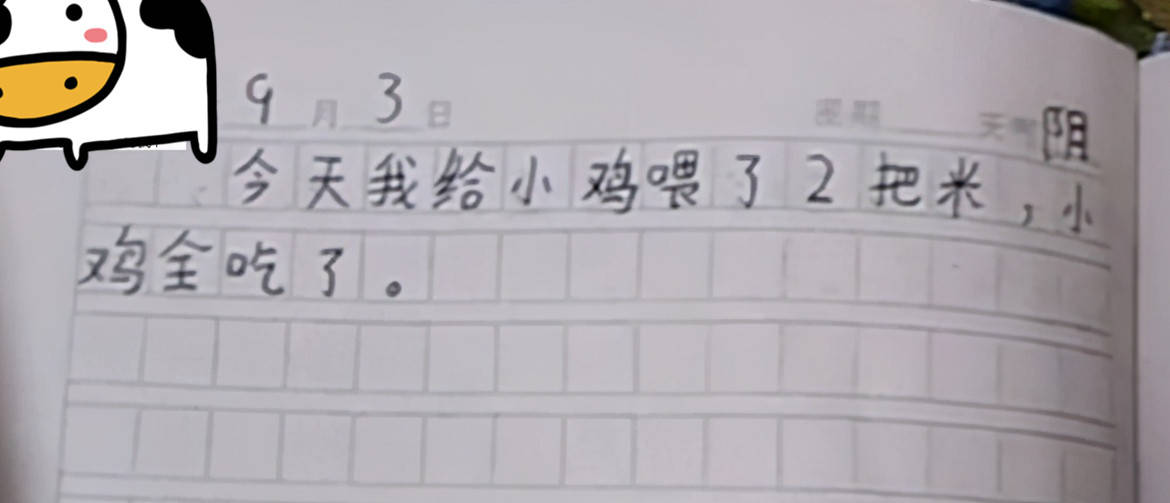 9月3日 星期 天气阴
今天我给小鸡喂了2把米，小
鸡全吃了。